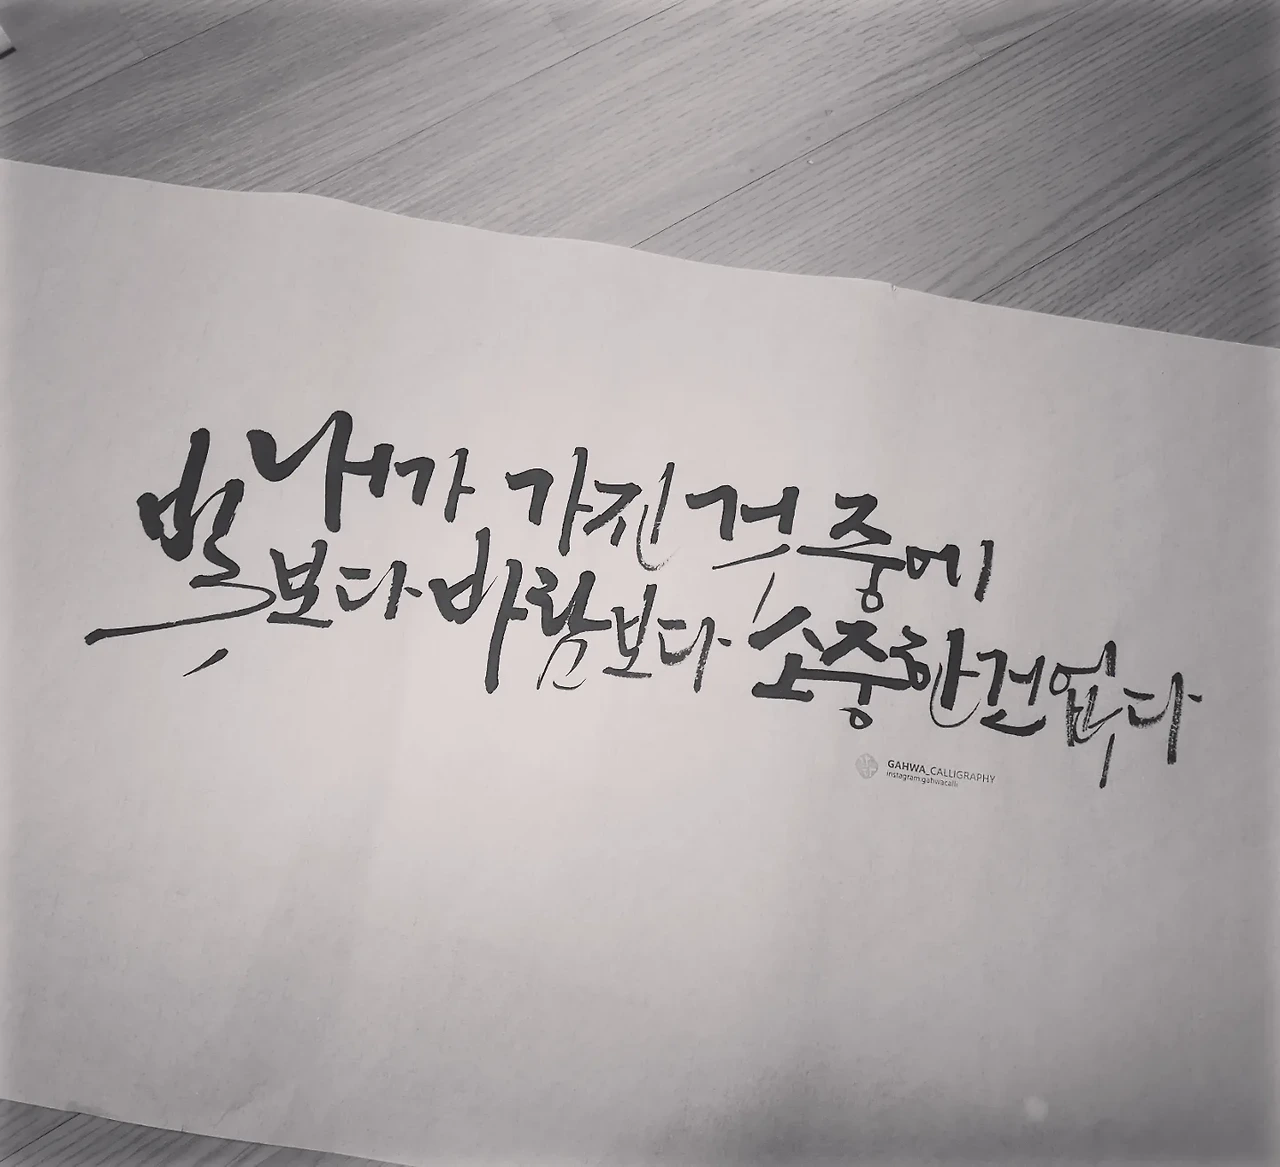 내가 가진 것 중에
빛보다 바람보다 소중한 건 없다
GAHWA_CALLIGRAPHY
instagram:gahwacalli